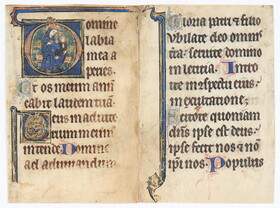 Domine
labia
mea a
peries.
Et os meum ann
ciabit laudem tuā
Deus in adiuto
rium meum in
tende. Domine
ad adiuuandum
Gloria patri & filio
Iubilate deo omnis
terra: seruite domino
in leticia. Intro
ite in conspectu eius
in exultatione;
Scitote quoniam
dn̄s ipse est deus:
ipse fecit nos & nō
ipsi nos. Populus